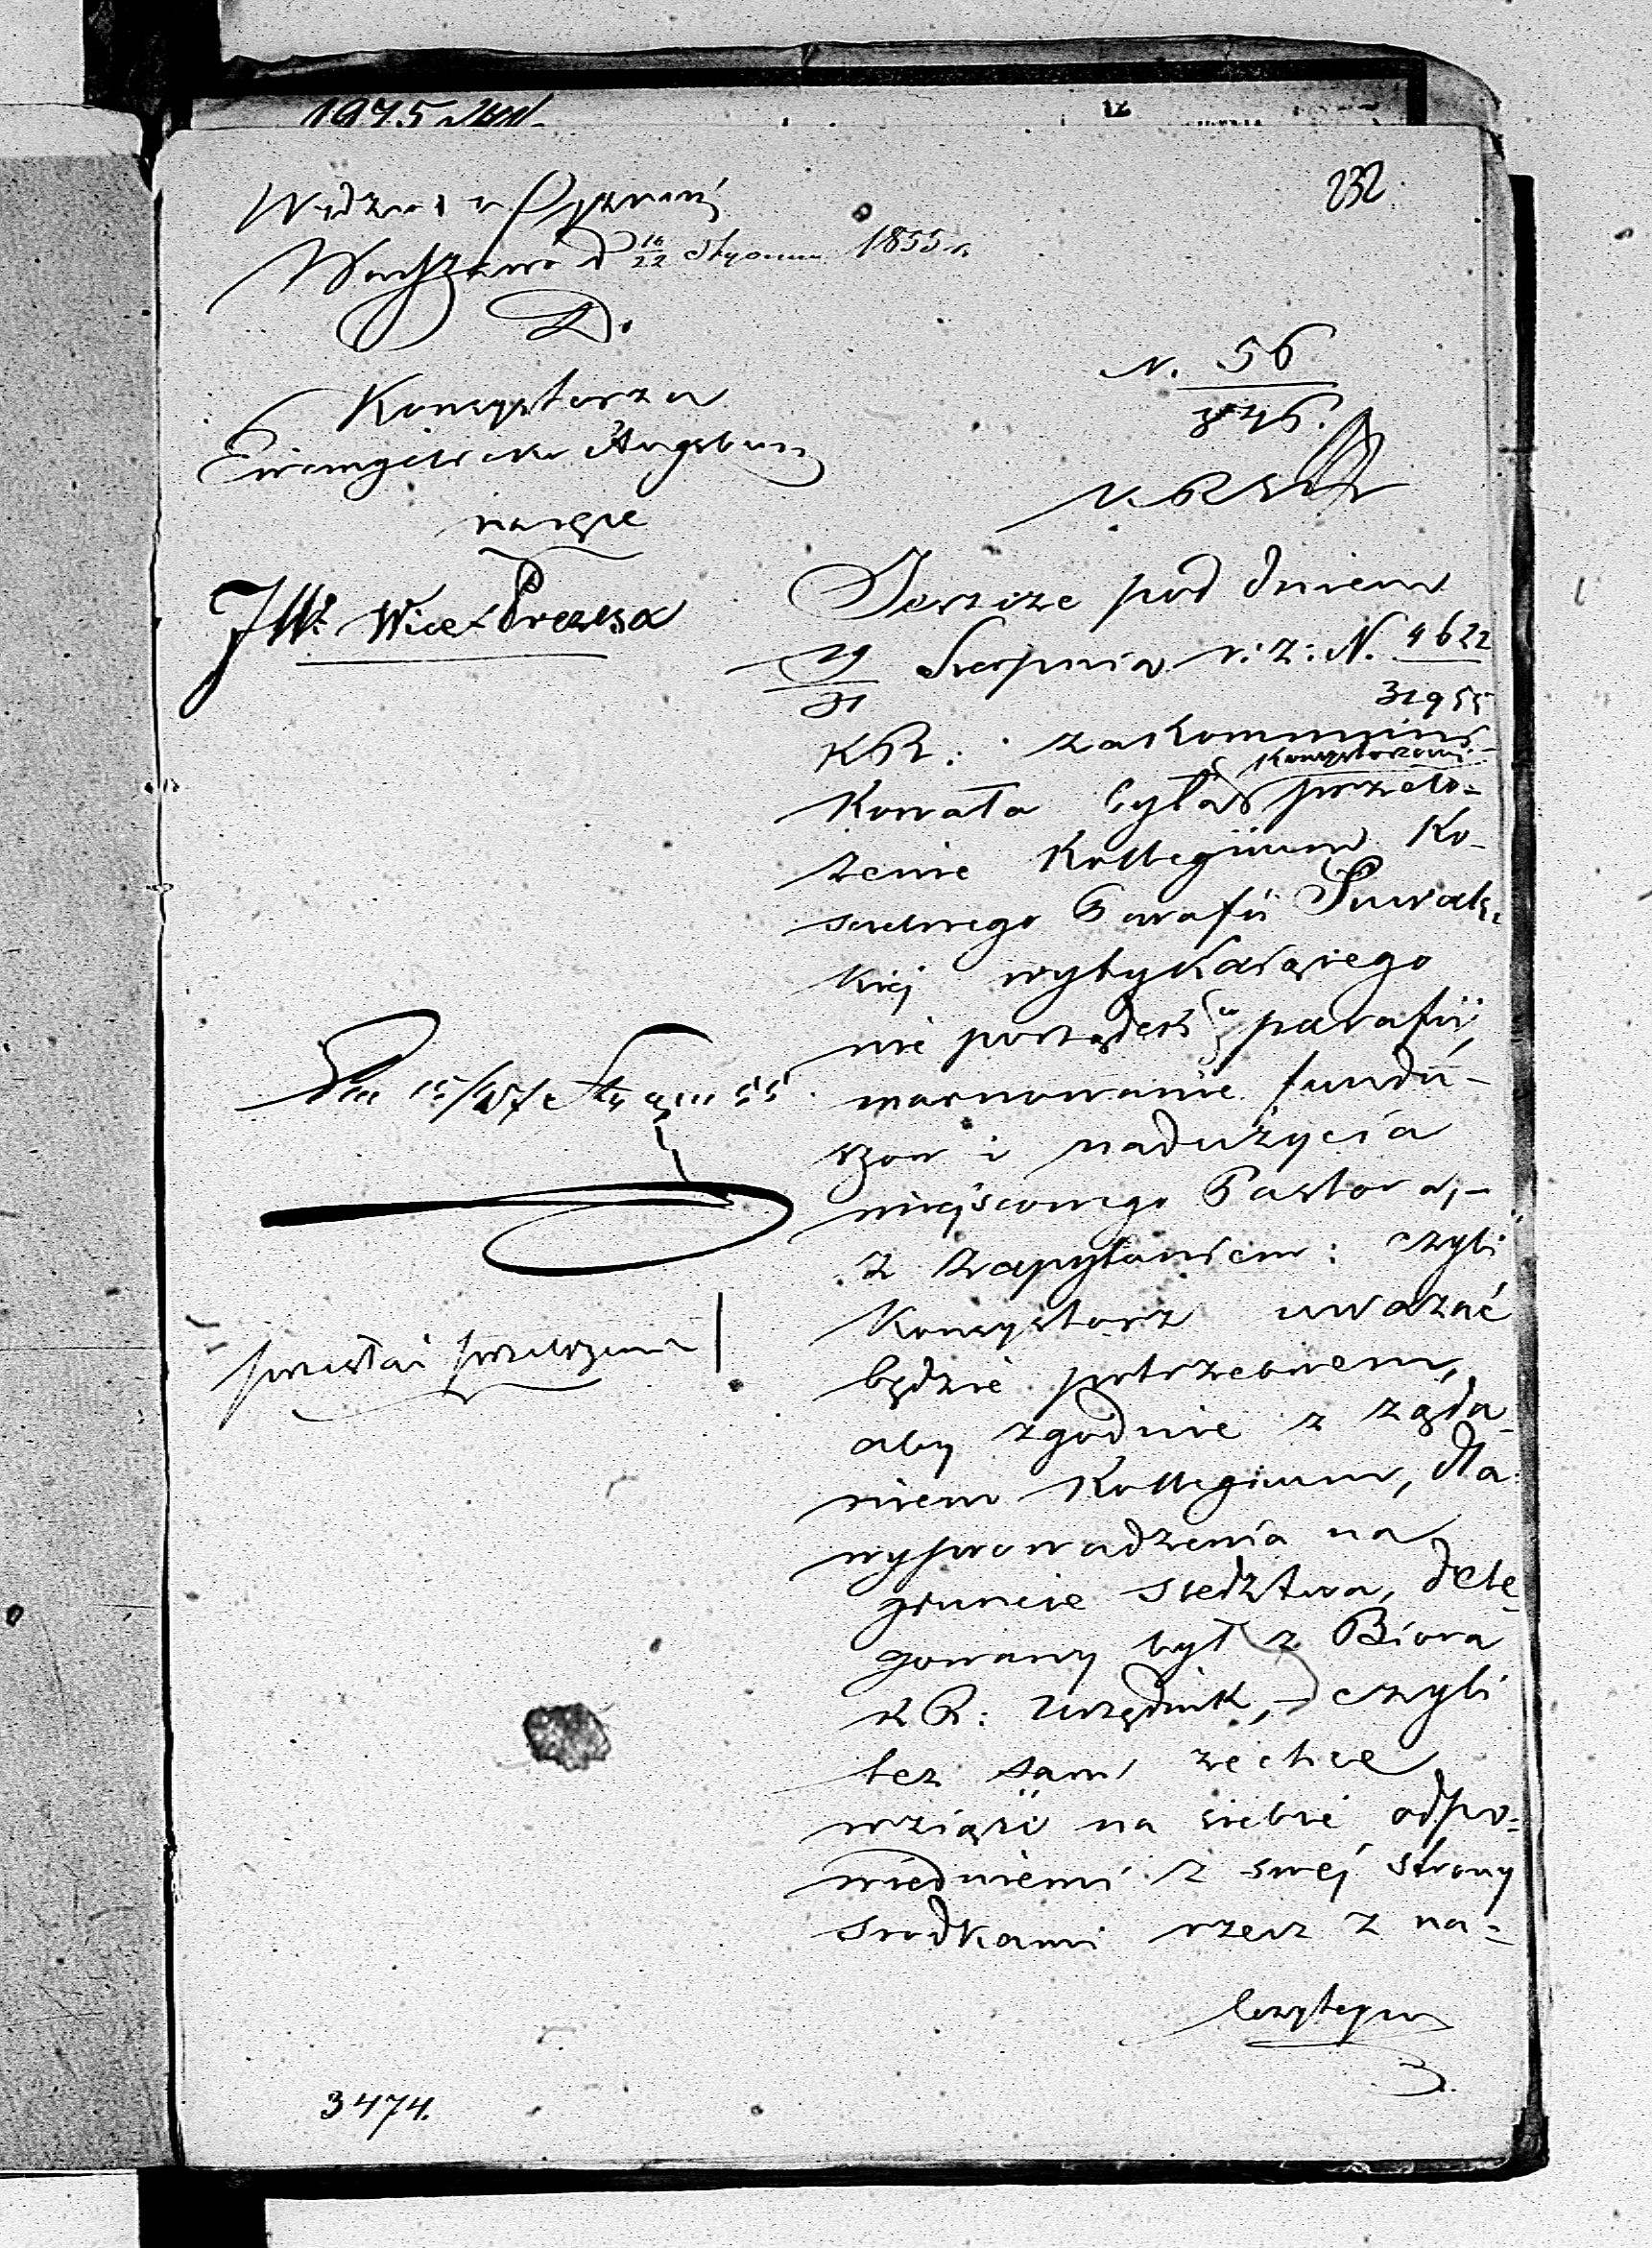 232
Warszawa d 10/22 Stycznia 1855 r.
D.
Konsystorza
Ewangielicko Augsburs
na ręce
JW. Wice Prezesa
N. 56
Jeszcze pod dniem
19/31 Sierpnia r: z: N. 4622/31955
KR: zakommuni-
kowała była Konsystorzowi przeło-
żenie Kollegium Ko-
ścielnego Parafii Suwals-
kiej wytykającego
nie porządek w parafii,
marnowanie fundu-
szow i nadużycia
miejscowego Pastora,-
z zapytaniem: czyli
Konsystorz uważać
będzie potrzebnem,
aby zgodnie z żąda-
niem Kollegium, dla
wyprowadzenia na
gruncie śledztwa, dele-
gowany był z Biora
KR: Urzędnik,- czyli
też sam zechce
wziąść na siebie odpo-
wiedniemi z swej strony
środkami rzecz z na-
3474.